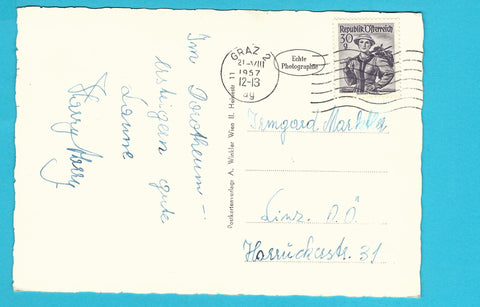 Im Dorotheum –
gute
Laune
Harry
GRAZ 2
21.VIII
1957
12-13
Echte
Photographie
Republik Österreich
30
g
Postkartenverlag A. Winkler Wien II. Heinestr 11
Irmgard
Linz. O.Ö.
Harruckerstr. 31